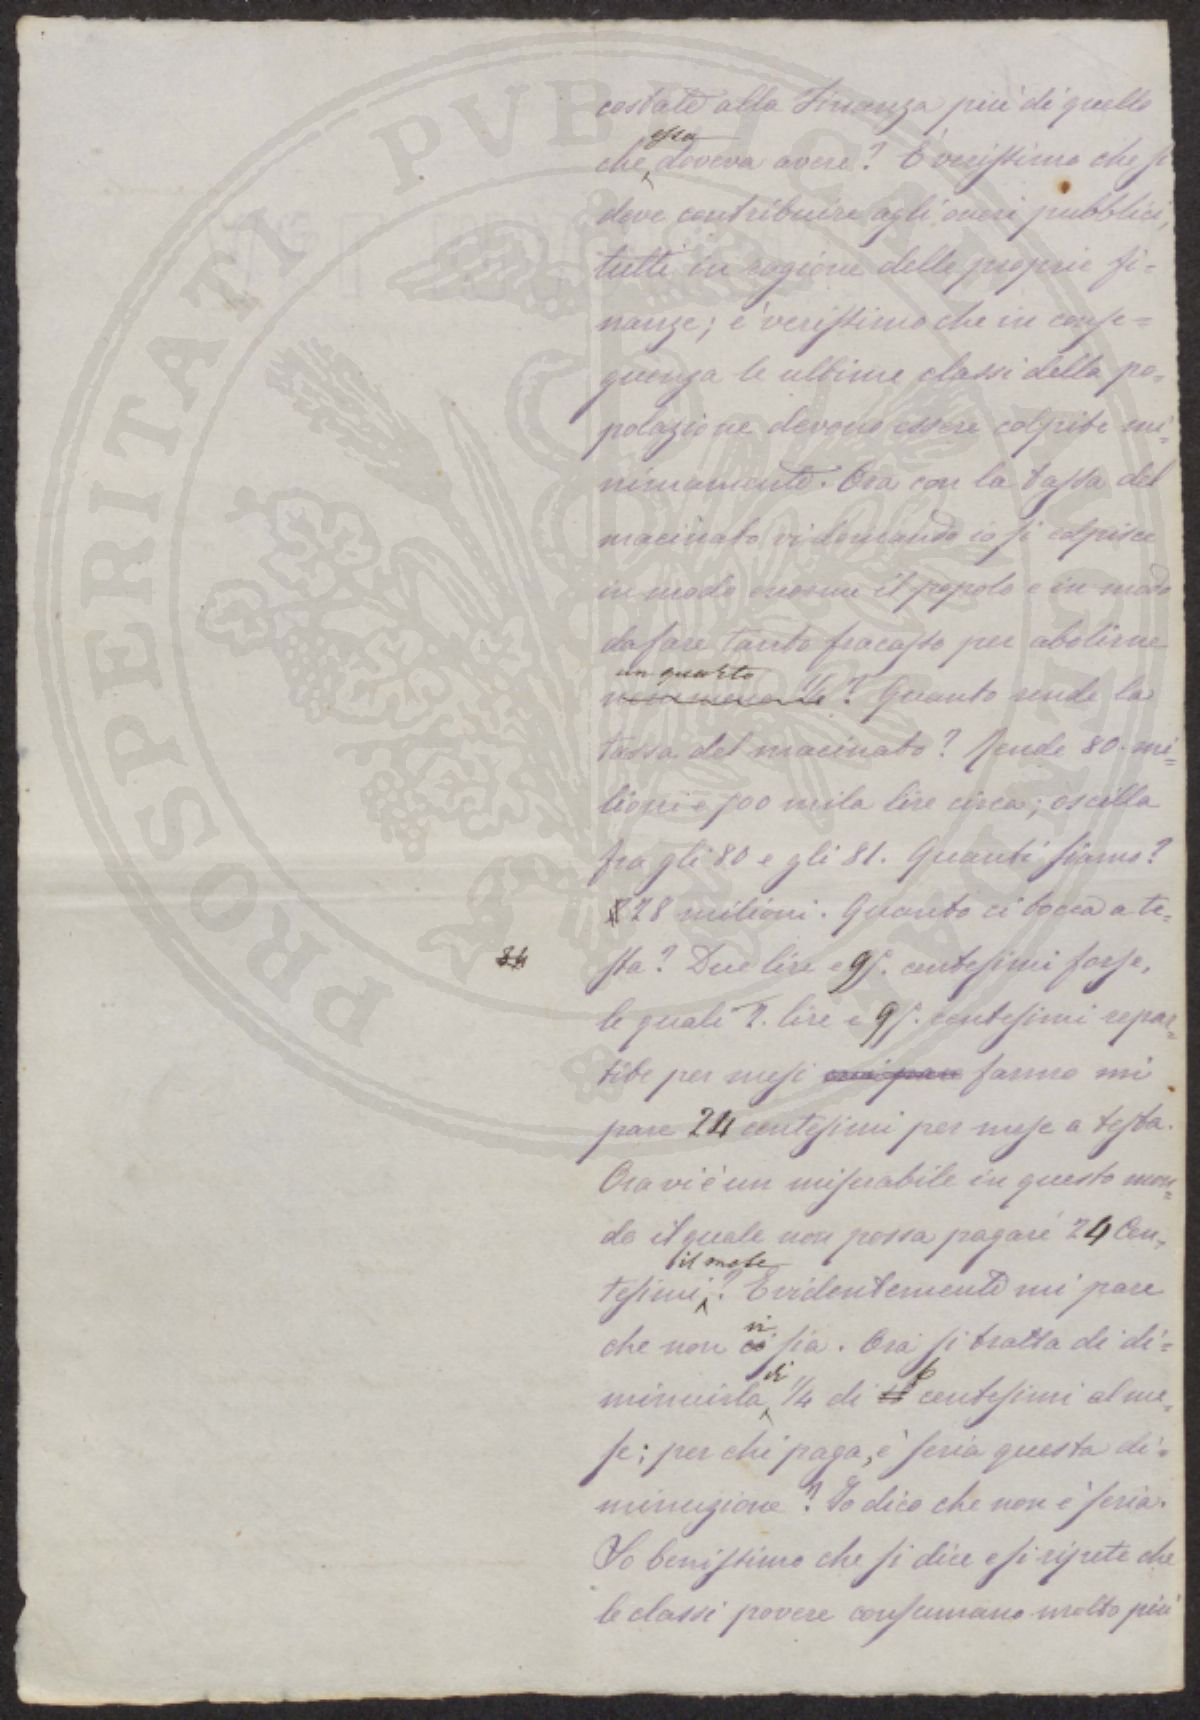 costato alla Finanza più di quello
che essa doveva avere? È verissimo che si
deve contribuire agli oneri pubblici,
tutti in ragione delle proprie fi=
nanze; è verissimo che in conse=
guenza le ultime classi della po=
polazione devono essere colpite mi=
nimamente. Ora con la tassa del
macinato vi domando io si colpisce
in modo enorme il popolo e in modo
da fare tanto fracasso per abolirne
un quarto
nemmeno 1/4? Quanto rende la
tassa del macinato? Rende 80. mi=
lioni e 500 mila lire circa; oscilla
fra gli 80 e gli 81. Quanti siamo?
28 milioni. Quanto ci tocca a te=
84
sta? Due lire e 95. centesimi forse,
le quali 2. lire e 95. centesimi repar=
tite per mesi fanno mi
pare 24 centesimi per mese a testa.
Ora vi è un miserabile in questo mon=
do il quale non possa pagare 24 Cen=
tesimi il mese? Evidentemente mi pare
che non vi sia. Ora si tratta di di=
minuirla di 1/4 di 6 centesimi al me=
se; per chi paga, è seria questa di=
minuzione? Io dico che non è seria.
So benissimo che si dice e si ripete che
le classi povere consumano molto più
PROSPERITATI PVBLICAE